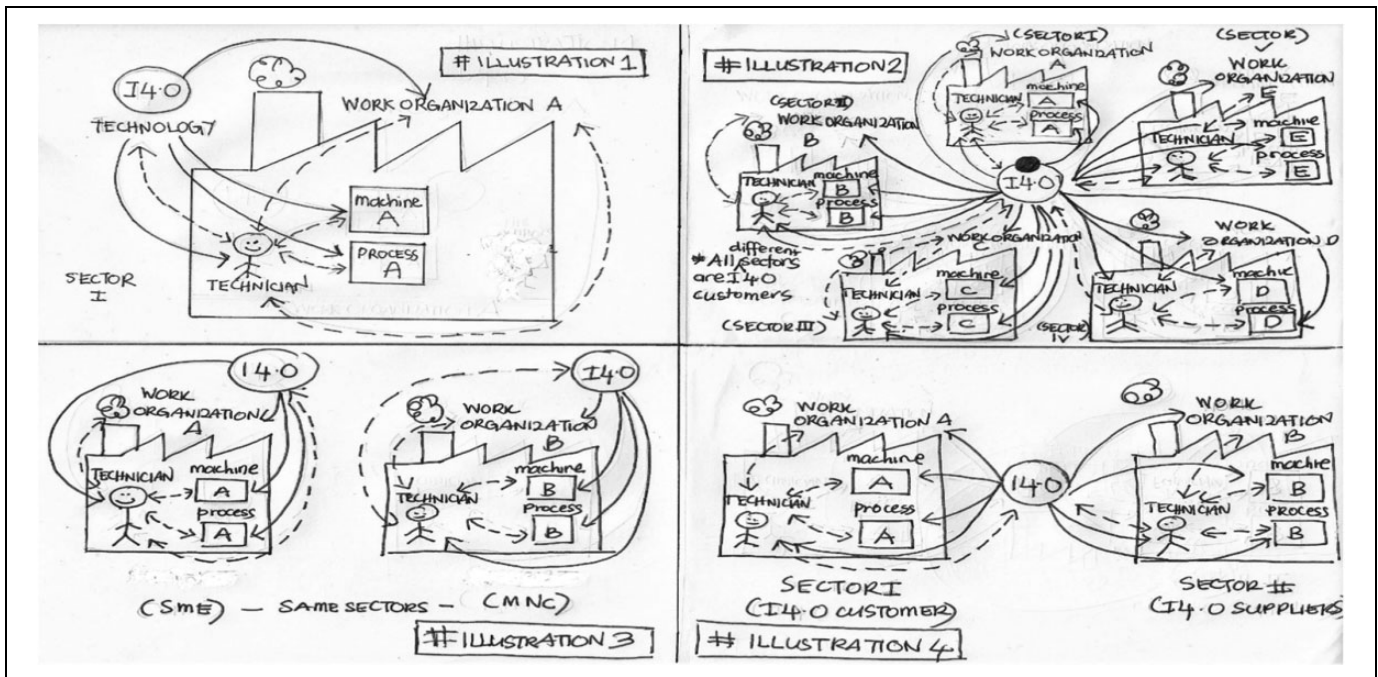 # ILLUSTRATION 1
I4.0
TECHNOLOGY
WORK ORGANIZATION A
machine
A
PROCESS
A
TECHNICIAN
SECTOR
I
# ILLUSTRATION 2
(SECTOR I)
WORK ORGANIZATION
A
TECHNICIAN
machine
A
process
A
(SECTOR)
V
WORK
ORGANIZATION
E
TECHNICIAN
machine
E
process
E
(SECTOR II)
WORK ORGANIZATION
B
TECHNICIAN
machine
B
process
B
I4.0
different
* All sectors
are I4.0
customers
WORK ORGANIZATION
TECHNICIAN
machine
C
process
C
(SECTOR III)
WORK
ORGANIZATION D
TECHNICIAN
machine
D
process
D
(SECTOR
IV
I4.0
WORK
ORGANIZATION
A
TECHNICIAN
machine
A
process
A
I4.0
WORK
ORGANIZATION
B
TECHNICIAN
machine
B
process
B
(SmE) – SAME SECTORS – (MNC)
# ILLUSTRATION 3
WORK
ORGANIZATION A
TECHNICIAN
machine
A
process
A
I4.0
WORK
ORGANIZATION
B
TECHNICIAN
machine
B
process
B
SECTOR I
(I4.0 CUSTOMER)
SECTOR II
(I4.0 SUPPLIERS
# ILLUSTRATION 4